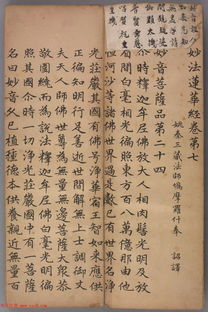 妙法蓮華經卷第七
姚秦三藏法師鳩摩羅什奉 詔譯
妙音菩薩品第二十四
尒時釋迦牟尼佛放大人相肉髻光明及放
眉間白毫相光徧照東方百八萬億那由他
恒河沙等諸佛世界過是數已有世界名淨
光莊嚴其國有佛号淨華宿王智如來應供
正徧知明行足善逝世間解無上士調御丈
夫天人師佛世尊為無量無邊菩薩大衆恭
敬圍繞而為說法釋迦牟尼佛白毫光明徧
照其國尒時一切淨光莊嚴國中有一菩薩
名曰妙音久已種種德本供養親近無量百